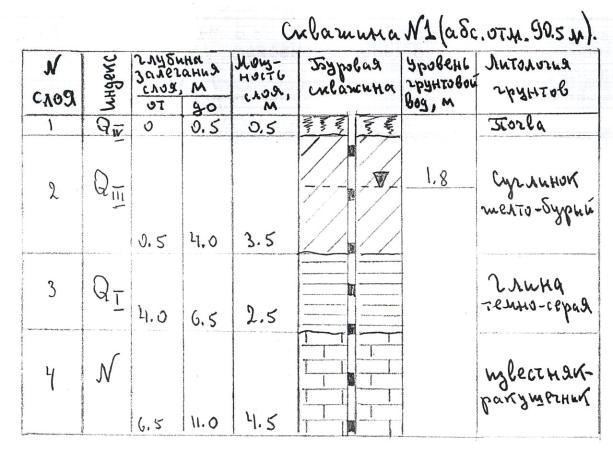 Скважина N1 (абс. отм. 90.5 м).
N слоя | Индекс | Глубина залегания слоя, м от до | Мощность слоя, м | Буровая скважина | Уровень грунтовой вод, м | Литология грунтов
1 QIV 0 0.5 0.5 Почва
2 QIII 0.5 4.0 3.5 1.8 Суглинок желто-бурый
3 QI 4.0 6.5 2.5 Глина темно-серая
4 N 6.5 11.0 4.5 известняк-ракушечник